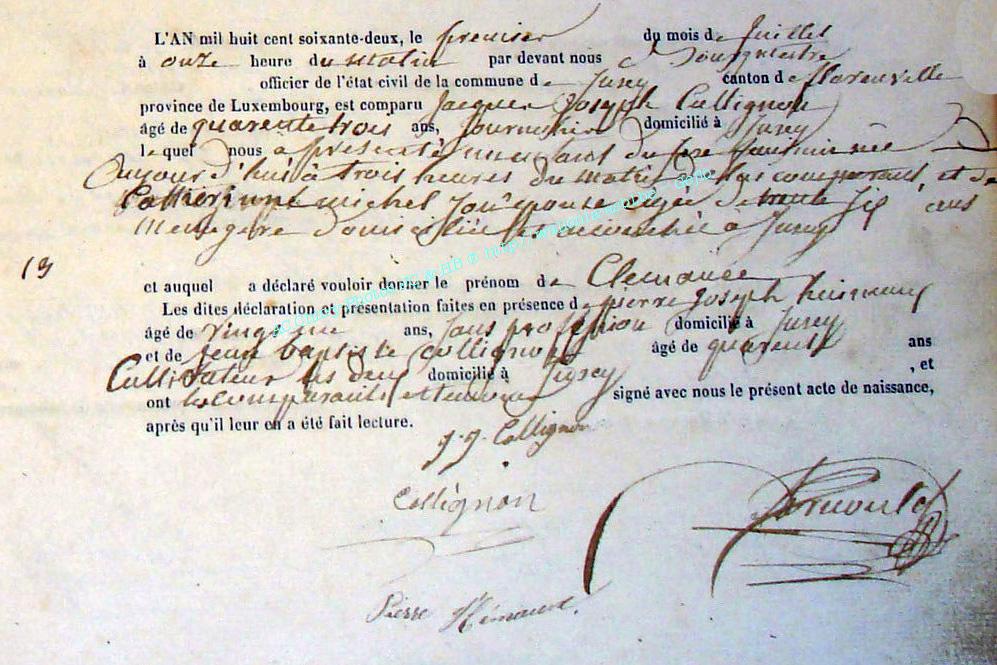 L'AN mil huit cent soixante-deux, le premier du mois de Juillet
à onze heure du matin par devant nous Bourgmestre
officier de l'état civil de la commune de Jusey canton de
province de Luxembourg, est comparu Jacques Joseph Collignon
âgé de quarente trois ans, Journalier domicilié à Jusey
lequel nous a presenté un enfant du sexe née
aujourd'hui à trois heures du matin de lui comparant, et de
michel son epouse agée de trente six ans
Menagere domiciliée et accouchée à Jusey
13
et auquel a déclaré vouloir donner le prénom de Clemance
Les dites déclaration et présentation faites en présence de pierre Joseph
âgé de vingt ans, sans proffesion domicilié à Jusey
et de Jean baptiste Collignon âgé de quarente ans
Cultivateur les deux domicilié à Jusey , et
ont les comparants et temoins signé avec nous le présent acte de naissance,
après qu'il leur en a été fait lecture.
J. J. Collignon
Collignon
Pierre